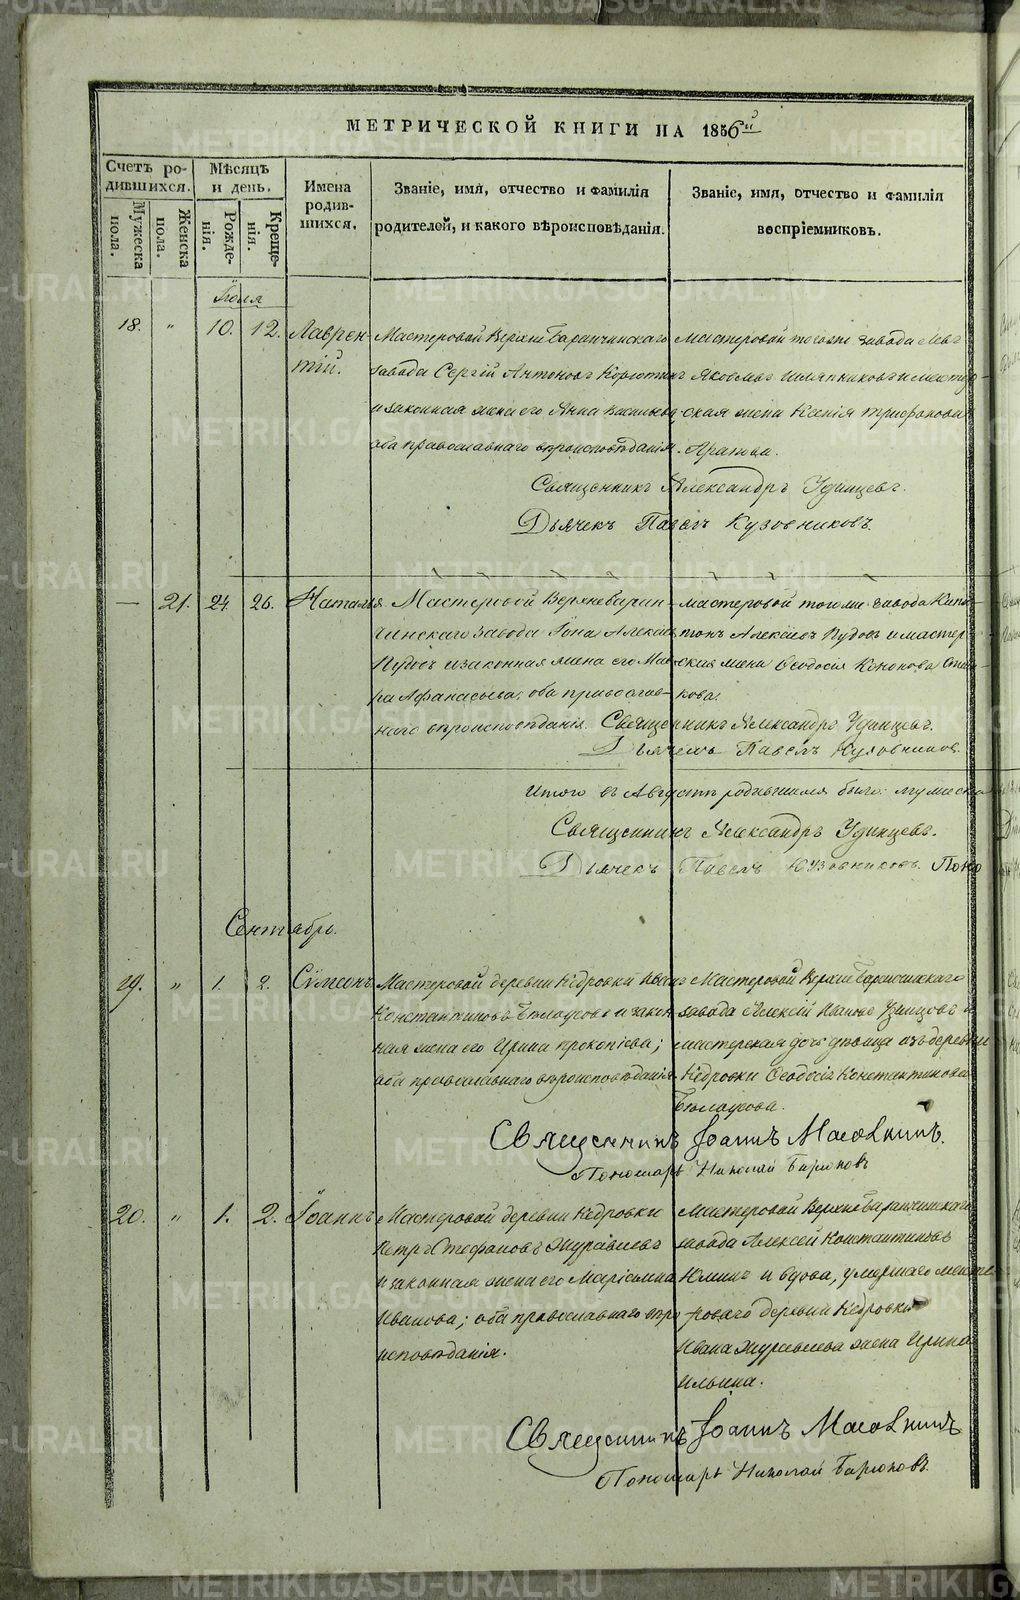 МЕТРИЧЕСКОЙ КНИГИ НА 1856й
Счетъ ро-
дившихся.
Мужеска
пола.
Женска
пола.
Мѣсяцъ
и день.
Рожде-
нія.
Креще-
нія.
Имена
родив-
шихся.
Званіе, имя, отчество и фамилія
родителей, и какого вѣроисповѣданія.
Званіе, имя, отчество и фамилія
воспріемниковъ.
18. " 10. 12. Лаврен-
тій.
Мастеровой Верхне Баранчинскаго
завода Сергій Антоновъ
и законная жена его Анна Васильева
оба православнаго вѣроисповѣданія.
мастеровой тогоже завода
Яковлевъ Шляпниковъ и мастер-
ская жена Ксенія Трифонова
Священникъ Александръ Удинцевъ.
Дьячекъ Павелъ Кузовниковъ.
— 21. 24. 26. Наталія
Мастеровой Верхнебаран-
чинскаго завода Іона Алексѣевъ
Пудовъ и законная жена его Мав-
ра Афанасьева, оба православ-
наго вѣроисповѣданія.
мастеровой тогоже завода Капи-
тонъ Алексѣевъ Пудовъ и мастер-
ская жена Ѳеодосія Кононова
Священникъ Александръ Удинцевъ.
Дьячекъ Павелъ Кузовниковъ.
Итого въ Августѣ родившихся было: мужеска
Священникъ Александръ Удинцевъ.
Дьячекъ Павелъ Кузовниковъ. Поно
Сентябрь.
19. " 1. 2. Сѷмеонъ
Мастеровой деревни Кедровки Иванъ
Константиновъ Бѣлоусовъ и закон-
ная жена его Ирина Прокопіева;
оба православнаго вѣроисповѣданія.
Мастеровой Верхне Баранчинскаго
завода Алексій Ивановъ Удинцовъ и
мастерская дочь дѣвица изъ деревни
Кедровки Ѳеодосія Константинова
Бѣлоусова.
Священникъ Іоаннъ
Пономарь Николай Бирюковъ
20. " 1. 2. Іоаннъ
Мастеровой деревни Кедровки
Петръ Стефановъ Журавлевъ
и законная жена его Маріамна
Иванова; оба православнаго вѣро-
исповѣданія.
Мастеровой Верхнебаранчинскаго
завода Алексѣй Константиновъ
и вдова, умершаго масте-
роваго деревни Кедровки
Ивана Журавлева жена Ирина
Ильина.
Священникъ Іоаннъ
Пономарь Николай Бирюковъ.